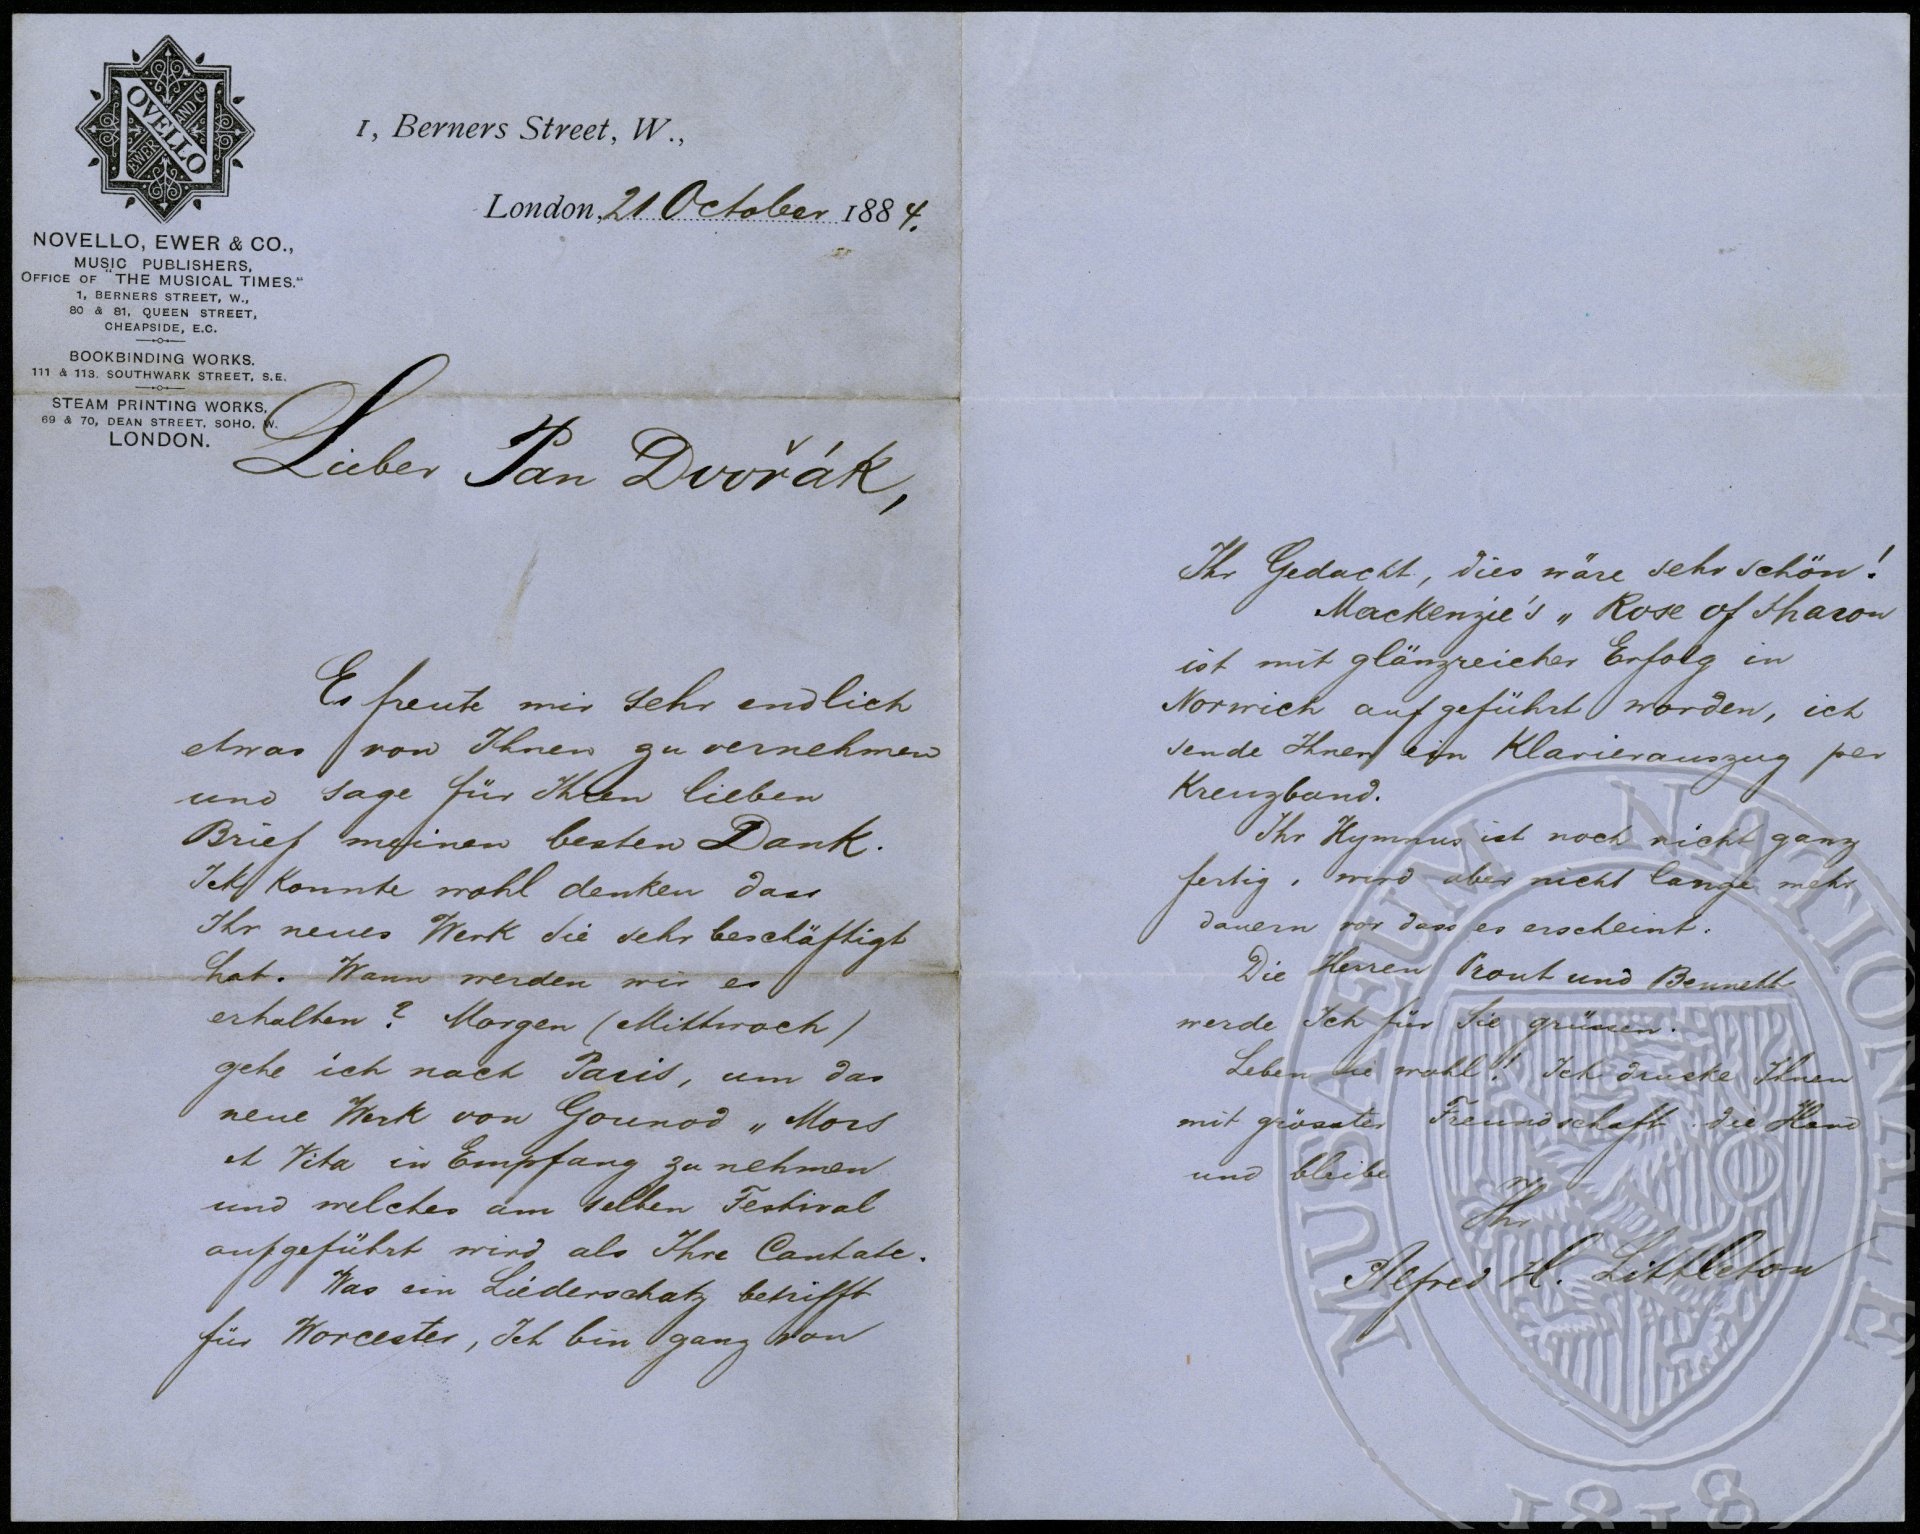 NOVELLO
EWER AND Co
NOVELLO, EWER & CO.,
MUSIC PUBLISHERS,
OFFICE OF "THE MUSICAL TIMES."
1, BERNERS STREET, W.,
80 & 81, QUEEN STREET,
CHEAPSIDE, E.C.
BOOKBINDING WORKS.
111 & 113. SOUTHWARK STREET, S.E.
STEAM PRINTING WORKS,
69 & 70, DEAN STREET, SOHO, W.
LONDON.
1, Berners Street, W.,
London, 21 October 1884.
Lieber Pan Dvořák,
Es freute mir sehr endlich
etwas von Ihnen zu vernehmen
und sage für Ihren lieben
Brief meinen besten Dank.
Ich konnte wohl denken dass
Ihr neues Werk Sie sehr beschäftigt
hat. Wann werden wir es
erhalten? Morgen (Mittwoch)
gehe ich nach Paris, um das
neue Werk von Gounod „ Mors
et Vita in Empfang zu nehmen
und welches am selben Festival
aufgeführt wird als Ihre Cantate.
Was ein Liederschatz betrifft
für Worcester, Ich bin ganz von
Ihr Gedacht, dies wäre sehr schön!
Mackenzie's „ Rose of Sharon
ist mit glänzreicher Erfolg in
Norwich aufgeführt worden, ich
sende Ihnen ein Klavierauszug per
Kreuzband.
Ihr Hymnus ist noch nicht ganz
fertig, wird aber nicht lange mehr
dauern vor dass es erscheint.
Die Herren Prout und Bennett
werde Ich für Sie grüssen.
Leben Sie wohl! Ich drucke Ihnen
mit grösster Freundschaft die Hand
und bleibe
Ihr
Alfred H. Littleton
MUSAEUM NATIONALE
1818